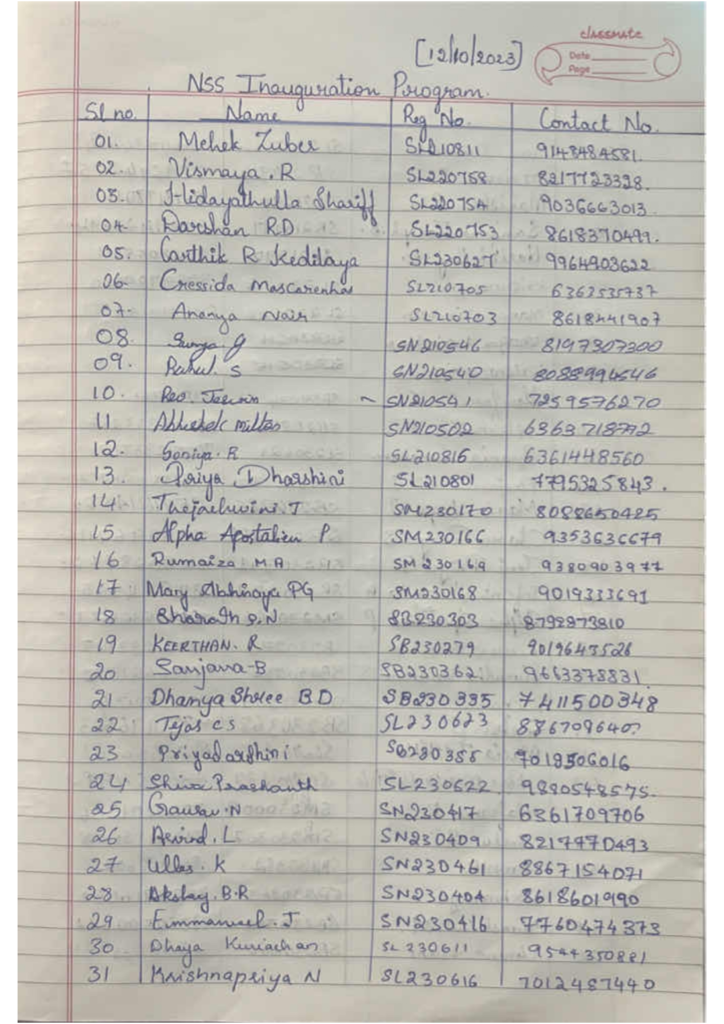 [12/10/2023]
classmate
Date
Page
NSS Inauguration Program.
Sl no. Name Reg No. Contact No.
01. Mehek Zuber SL210811 9148484581.
02. Vismaya. R SL220758 8217723328.
03. Hidayathulla Shariff SL220754 9036663013.
04. Darshan RD SL220753 8618370499.
05. Carthik R Kedilaya SL230627 9964903622
06. Cressida Mascarenhas SL210705 6363535737
07. Ananya Nair SL210703 8618441907
08. Surya. G SN210546 8197307300
09. Rahul. S SN210540 8088994546
10. ~ SN210541 7259576270
11 Abhishek milton SN210502 6363718772
12. Soniya. R SL210816 6361448560
13. Priya Dharshini SL210801 7795325843.
14 Thejashwini. T SM230170 8088650425
15 Alpha Apostalien P SM230166 9353636679
16 Rumaiza M.A SM230169 9380903977
17 Mary Abhinaya PG SM230168 9019333691
18 Bharath S.N SB230303 8792973810
19 KEERTHAN. R SB230279 9019643526
20 Sanjana-B SB230362 9663378831.
21 Dhanya Shree BD SB230335 7411500348
22 Tejas CS SL230623 8867096407
23 Priyadarshini SB230355 9019506016
24 Shiva Prashanth SL230622 9880548575.
25 Gaurav. N SN230417 6361709706
26 Arvind. L SN230409 8217970493
27 Ullas. K SN230461 8867154071
28 Akshay. B.R SN230404 8618601990
29 Emmanuel. J SN230416 7760474373
30 Dhaya Kuriachan SL230611 9544350881
31 Krishnapriya N SL230616 7012487440